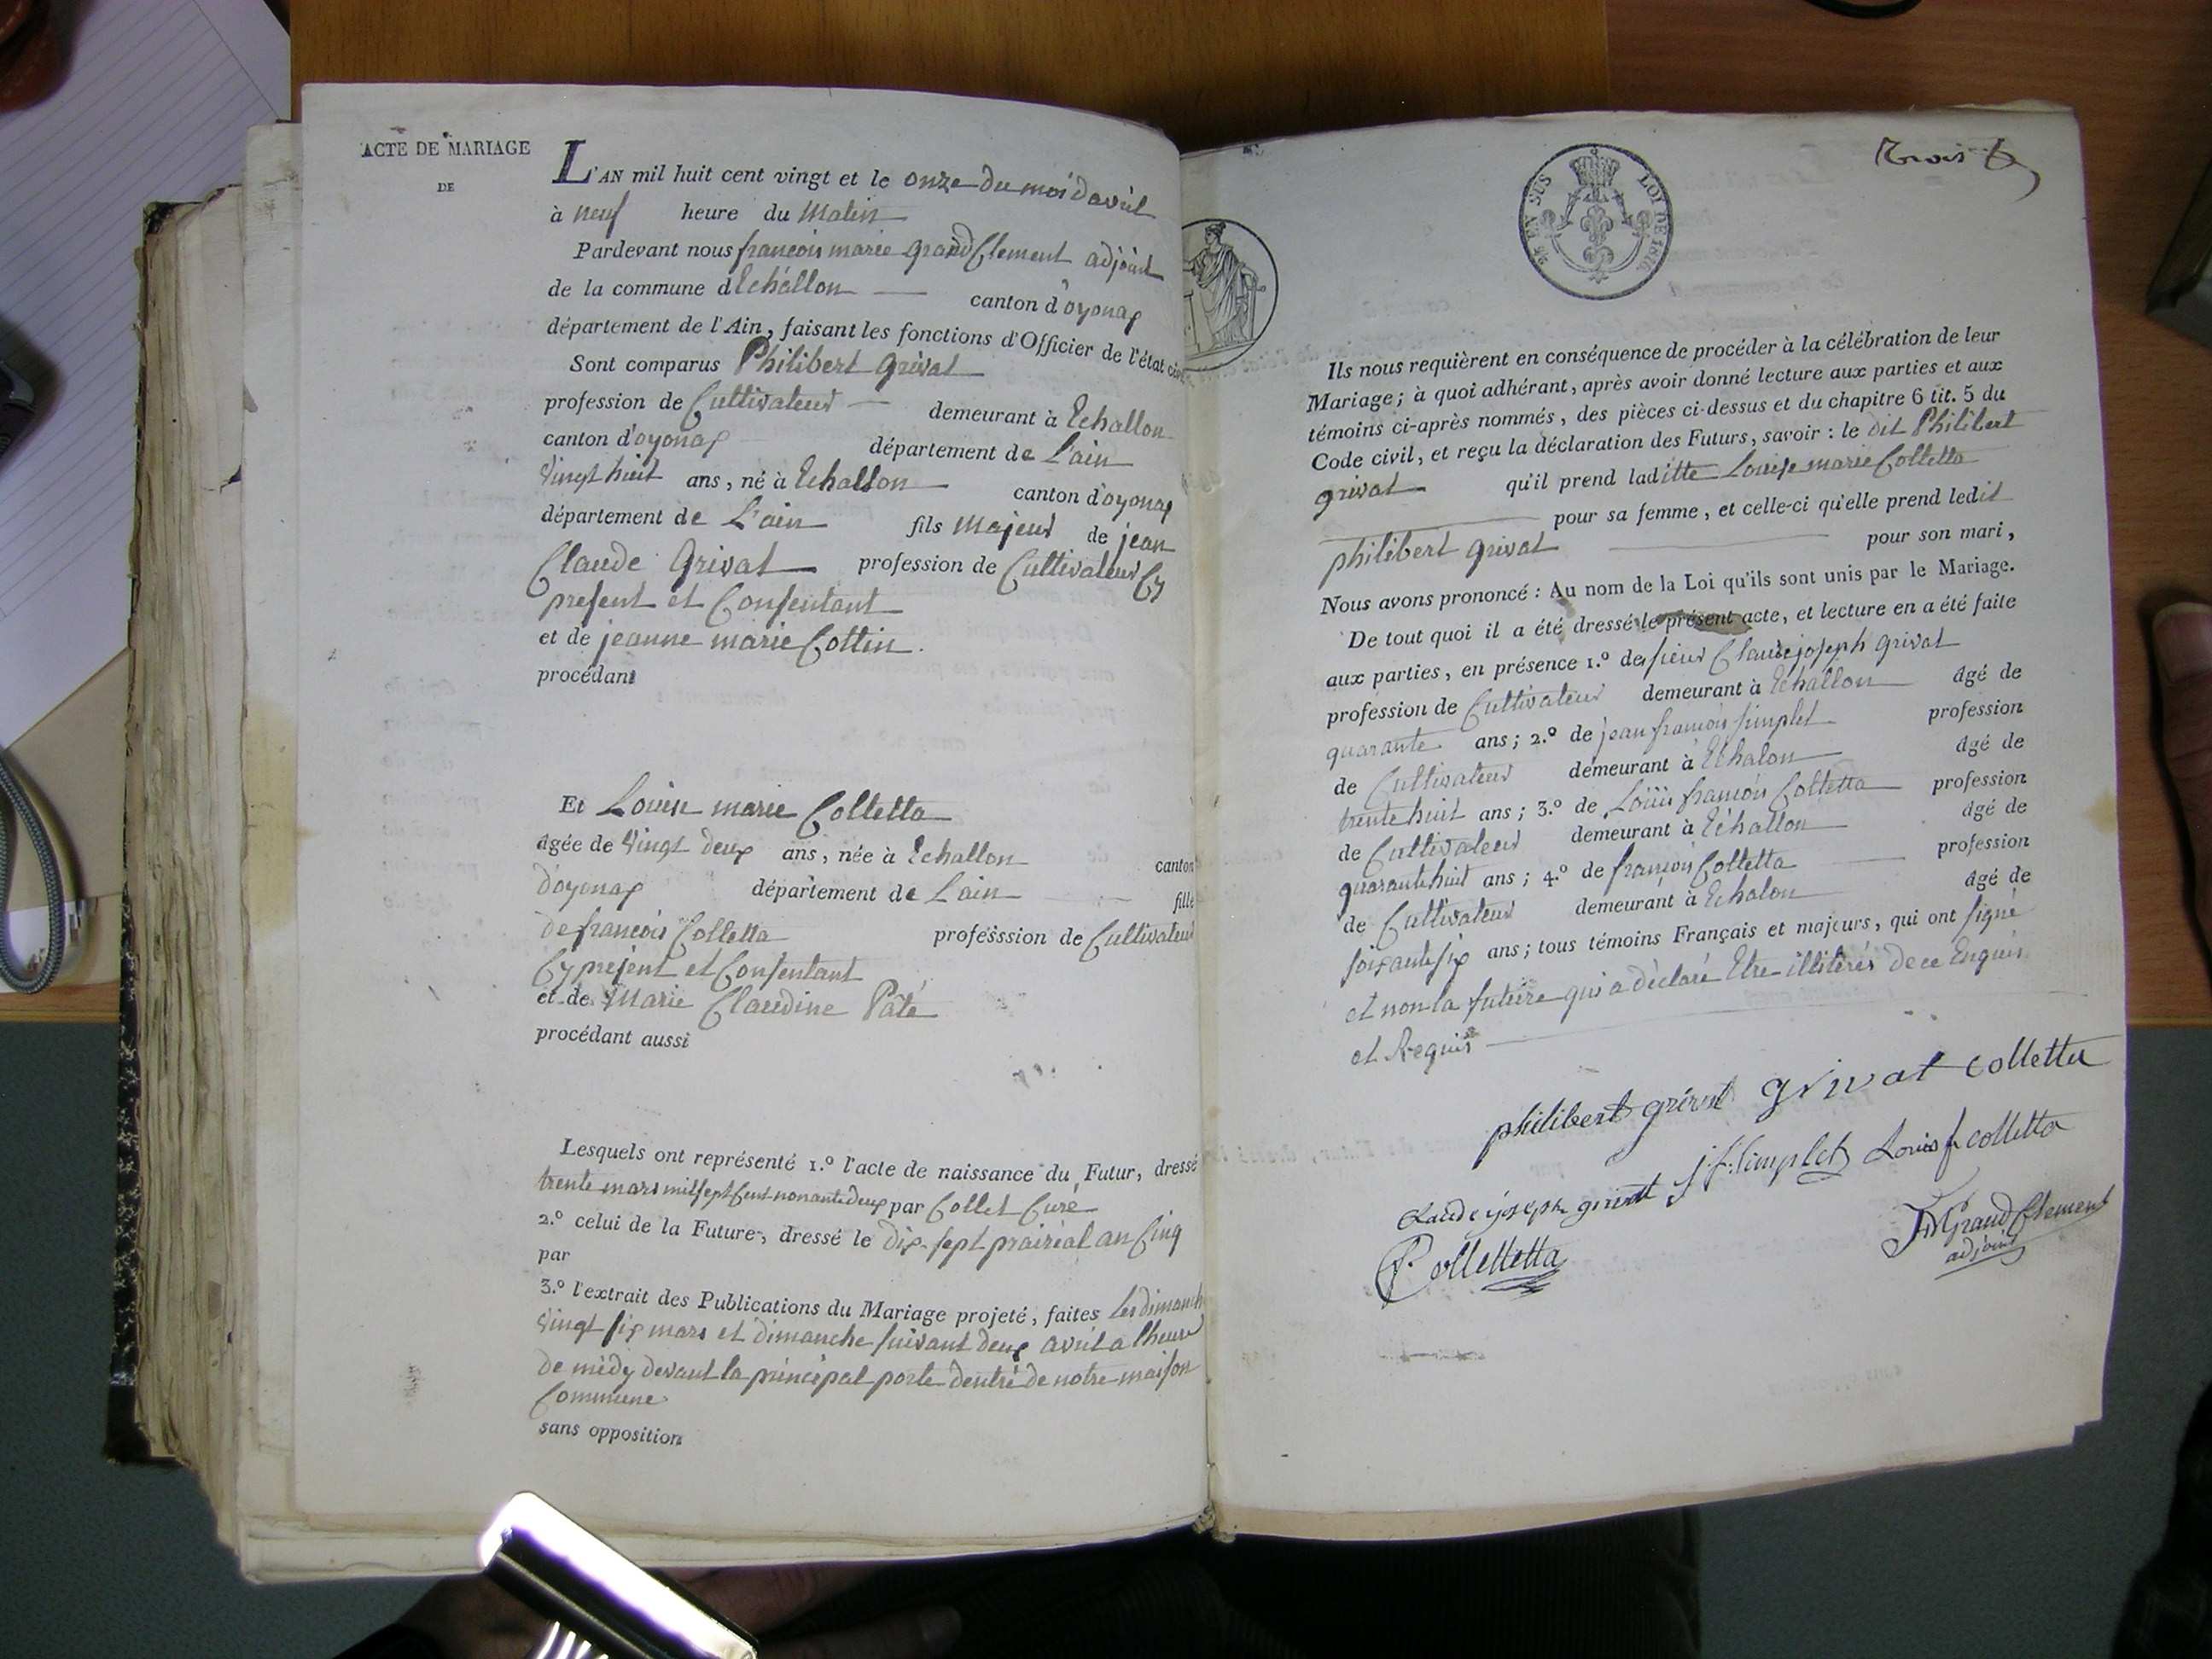 ACTE DE MARIAGE
DE
L'AN mil huit cent vingt et le onze du moi davril
à neuf heure du Matin
Pardevant nous francois marie grandClement adjoint
de la commune dEchallon canton d'oyonax
département de l'Ain, faisant les fonctions d'Officier de l'état civ
Sont comparus Philibert grivat
profession de Cultivateur demeurant à Echallon
canton d'oyonax département de L'ain
vingt huit ans, né à Echallon canton d'oyonax
département de L'ain fils Majeur de jean
Claude Grivat profession de Cultivateur Cy
present et Consentant
et de jeanne marie Cottin.
procédant
Et Louise marie Colletta
agée de vingt deux ans, née à Echallon canton
d'oyonax département de L'ain fille
de francois Colletta professsion de Cultivateur
Cy present et Consentant
et de Marie Claudine Paté
procédant aussi
Lesquels ont représenté 1.º l'acte de naissance du Futur, dressé
trente mars mil sept Cent nonante deux par Collet Curé
2.º celui de la Future, dressé le dix-sept prairéal an Cinq
par
3.º l'extrait des Publications du Mariage projeté, faites les dimanch
vingt six mars et dimanche suivant deux avril a lheure
de médy devant la principal porte dentré de notre maison
Commune
sans opposition
trois
25 EN SUS LOI DE 1816.
Ils nous requièrent en conséquence de procéder à la célébration de leur
Mariage; à quoi adhérant, après avoir donné lecture aux parties et aux
témoins ci-après nommés, des pièces ci-dessus et du chapitre 6 tit. 5 du
Code civil, et reçu la déclaration des Futurs, savoir: le dit Philibert
grivat qu'il prend laditte Louise marie Colletta
pour sa femme, et celle-ci qu'elle prend ledit
philibert grivat pour son mari,
Nous avons prononcé: Au nom de la Loi qu'ils sont unis par le Mariage.
De tout quoi il a été dressé le présent acte, et lecture en a été faite
aux parties, en présence 1.º de sieur Claude joseph grivat
profession de Cultivateur demeurant à Echallon agé de
quarante ans; 2.º de jean francois simplet profession
de Cultivateur demeurant à Echalon agé de
trente huit ans; 3.º de Louis francois Colletta profession
de Cultivateur demeurant à Echallon agé de
quarante huit ans; 4.º de francois Colletta profession
de Cultivateur demeurant à Echalon agé de
soixante six ans; tous témoins Français et majeurs, qui ont signé
et non la future qui a déclaré Etre illitérés de ce Enquis
et Requis
philibert grivat grivat colletta
Claude joseph grivat j f: simplet Louis f colletta
Collettetta
FMGrandClement
adjoint